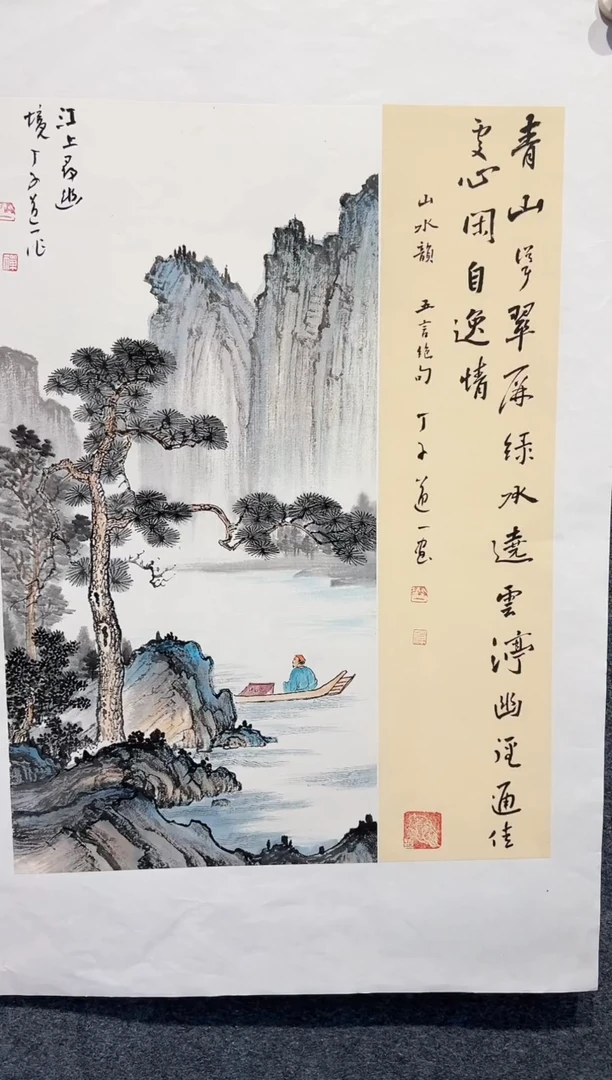 青山浮翠屏绿水遶雲渟幽徑通佳
處心闲自逸情
山水韻 五言绝句 丁子道一画
江上尋幽
境丁子道一作